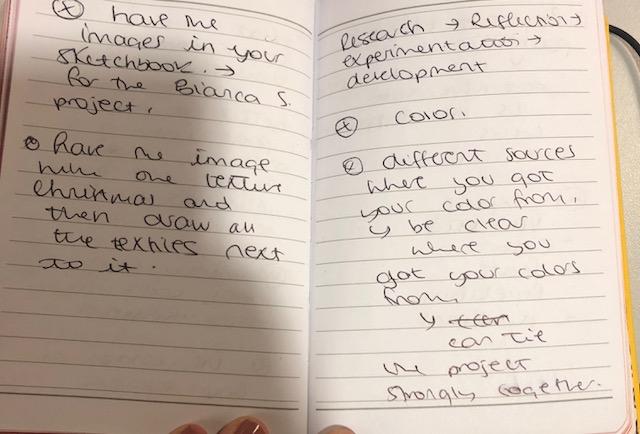 have the
images in your
sketchbook. →
for the Bianca S.
project.
have the image
one texture
Christmas and
then draw all
the textiles next
to it.
Research → Reflection →
experimentation →
development
color.
different sources
where you got
your color from.
↳ be clear
where you
got your colors
from.
↳
can tie
the project
strongly together.